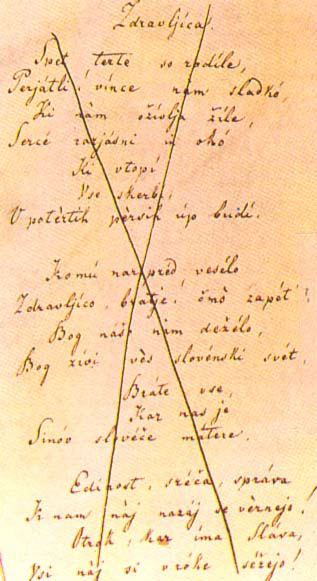 Zdravljica.
Spet terte so rodile,
Perjatli! vince nam sladkó,
Ki nam oživlja žile,
Sercé razjásni in okó
Ki vtopí
Vse skerbí,
V potértih pérsih úp budí.
Komú narpréd vesélo
Zdravljico, bratje! čmo zapét'!
Bog našo nam deželo,
Bog živi vès slovénski svét,
Bráte vse,
Kar nas je
Sinóv slovéče mátere.
Edinost, sréča, správa
K nam naj nazáj se vèrnejo!
Otrók, kar ima Sláva,
Vsi naj si v róke sežejo!